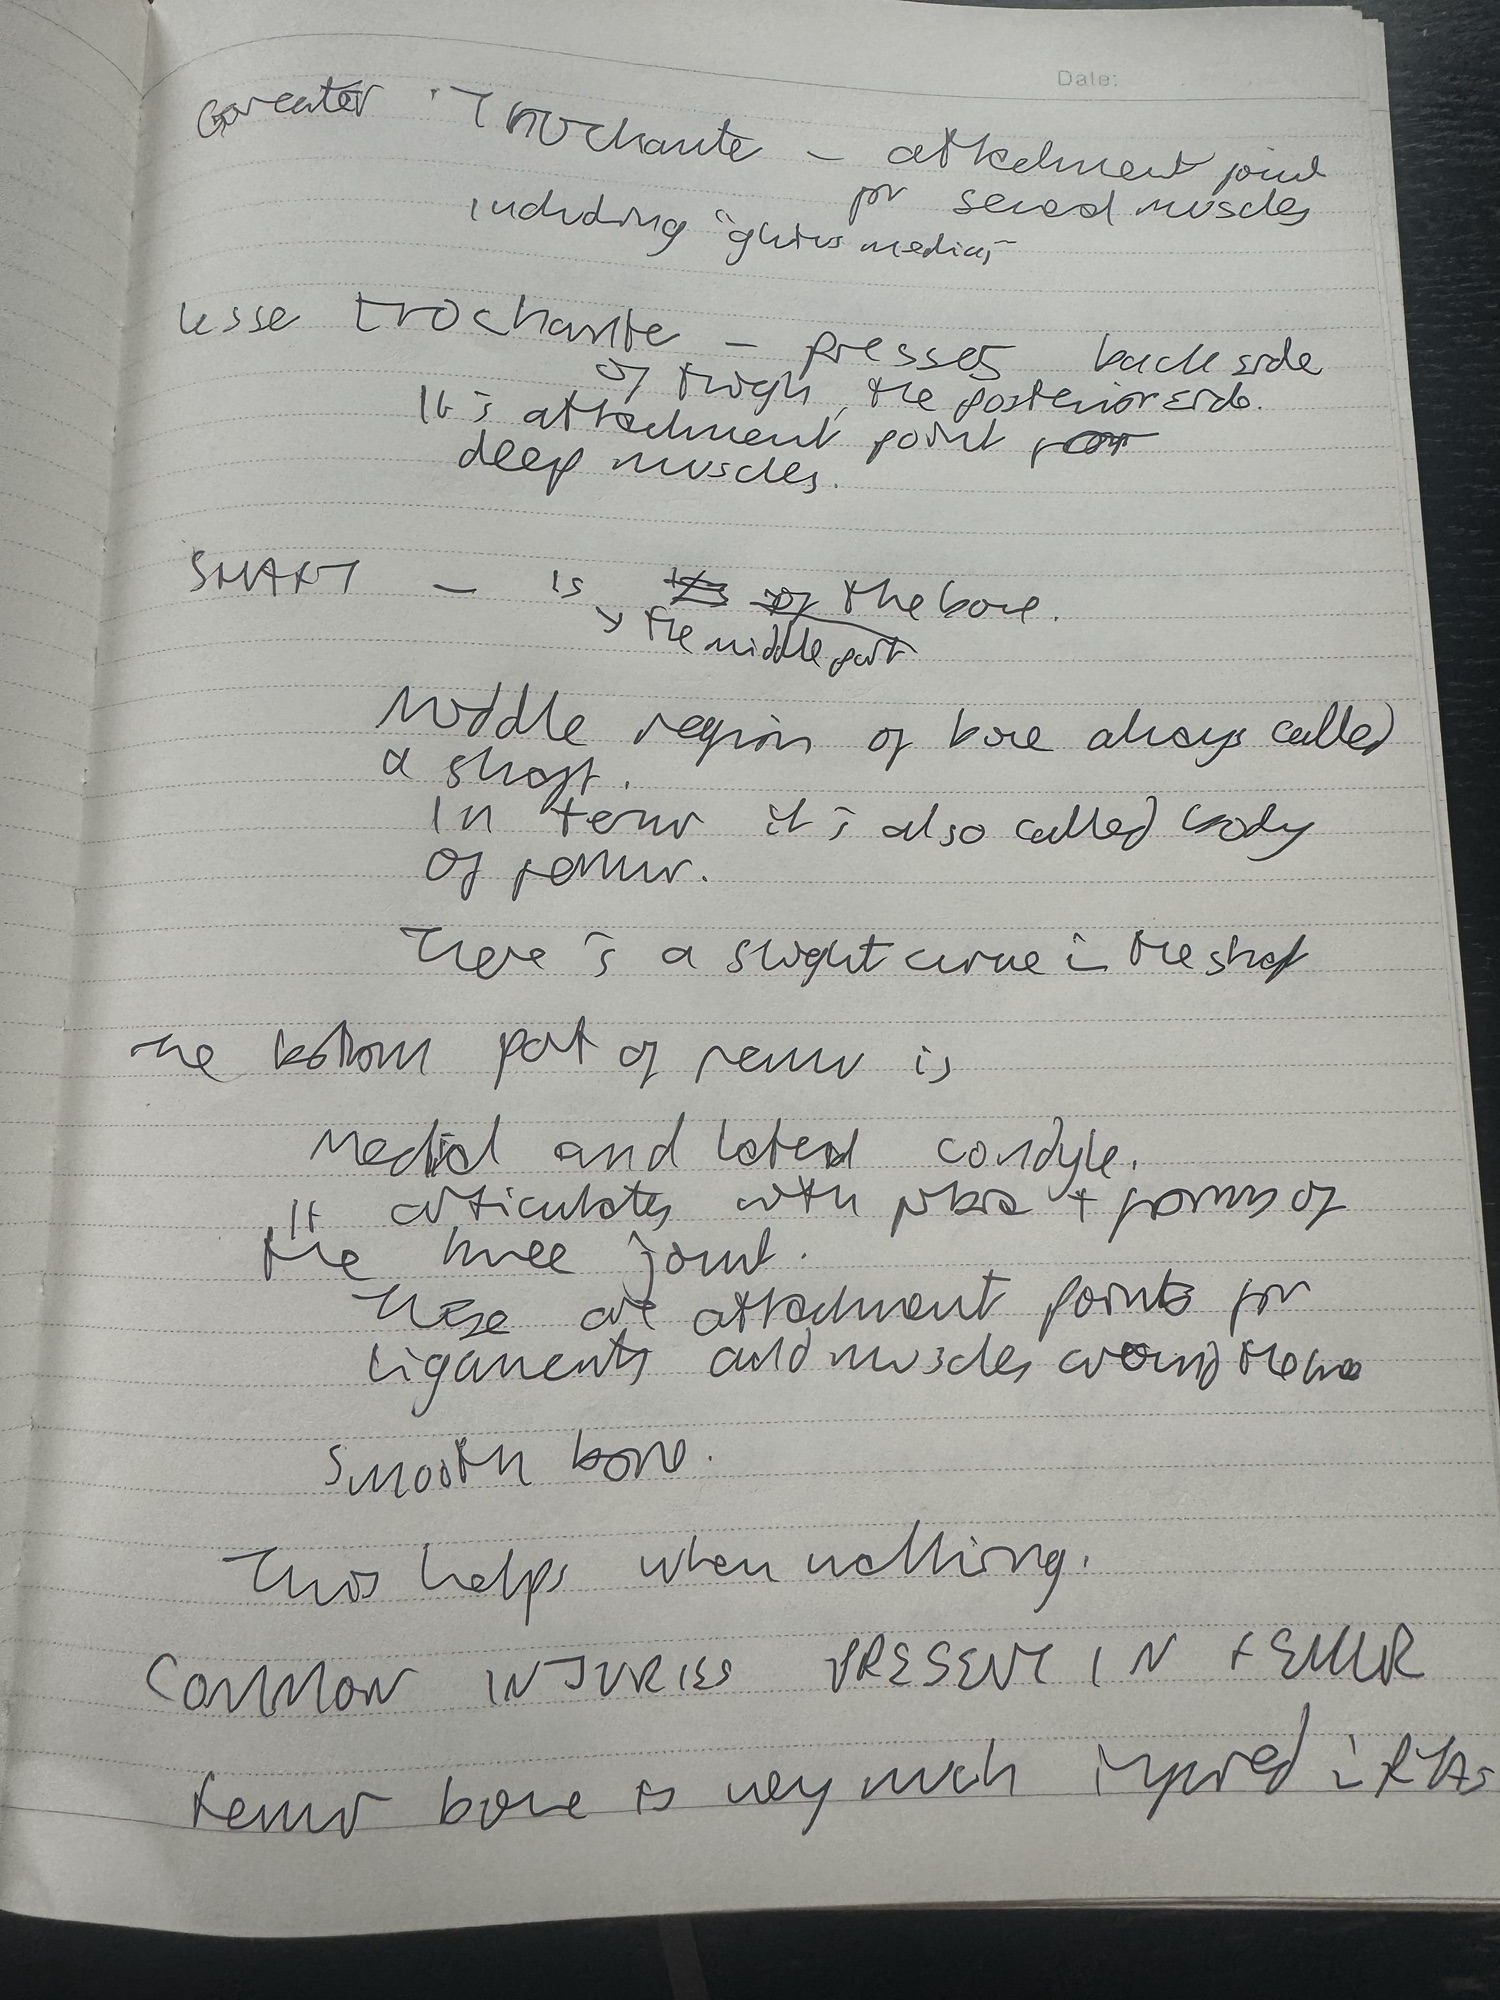 Date:
Greater Trochante - attachment point
for several muscles
including "gluteus medius"
lesse trochante - presses back side
of thigh, the posterior side.
It's attachment point for
deep muscles.
SHAFT - is the bone.
→ the middle part
Middle region of bone always called
a shaft.
In femur it's also called body
of femur.
There is a slight curve in the shaft
The bottom part of femur is
Medial and lateral condyle.
It articulates with + forms of
the knee joint.
These are attachment points for
ligaments and muscles around the knee
Smooth bone.
This helps when walking.
COMMON INJURIES PRESENT IN FEMUR
femur bone is very much injured in RTAs